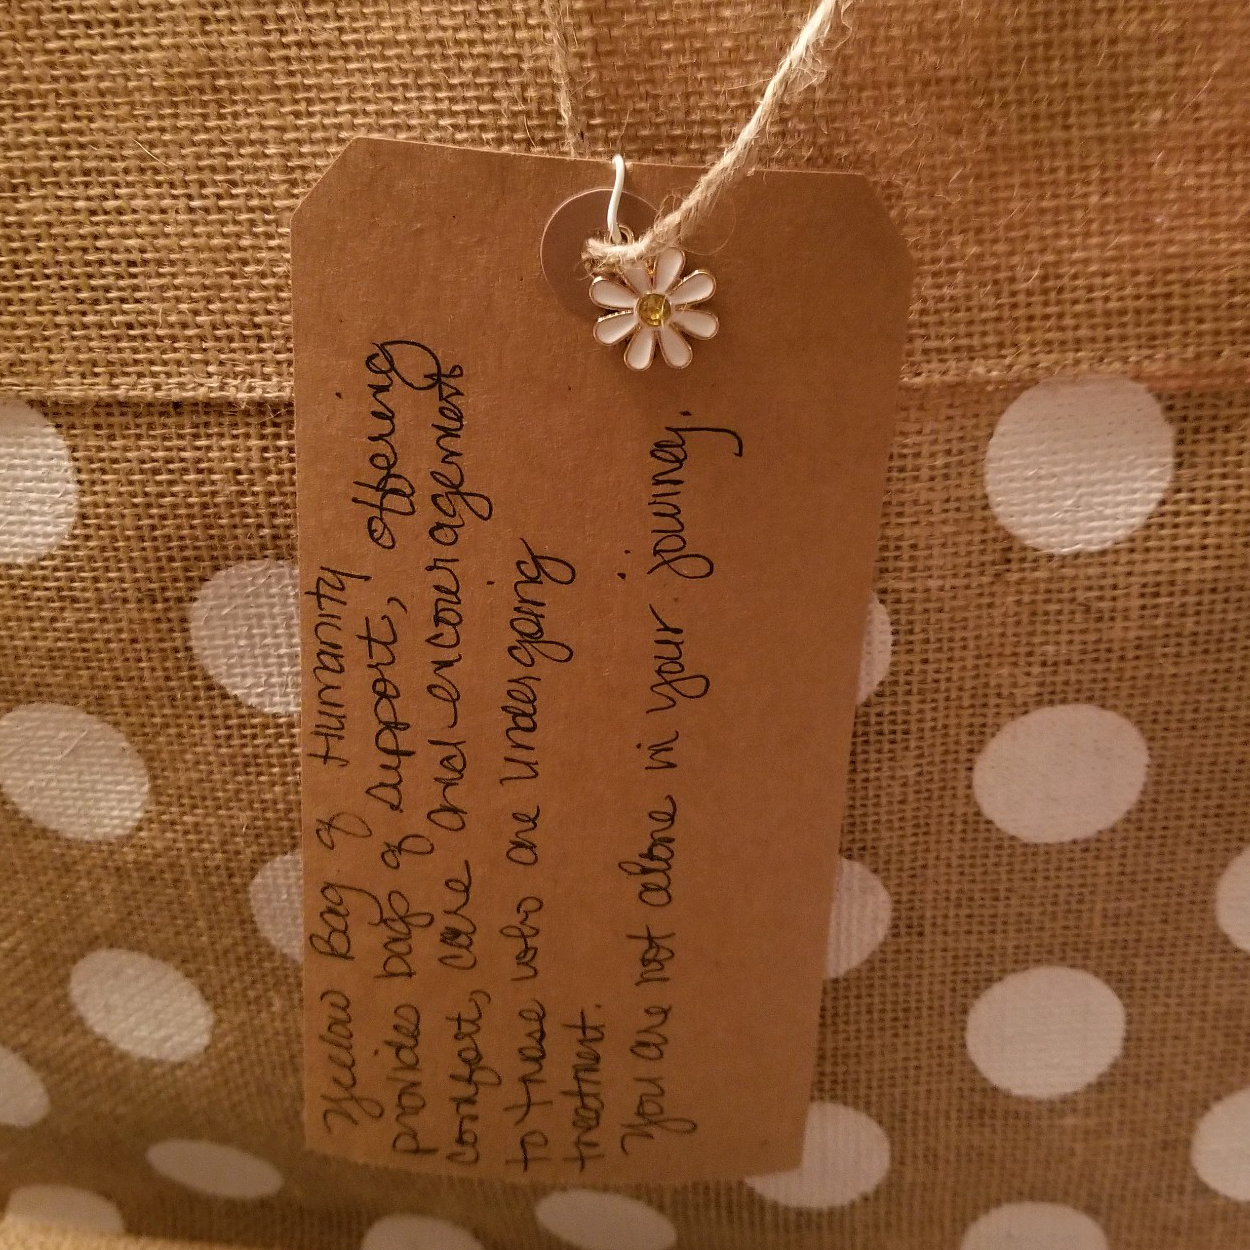 Yellow Bag of Humanity
provides bags of support, offering
comfort, care and encouragement
to those who are undergoing
treatment.
You are not alone in your journey.